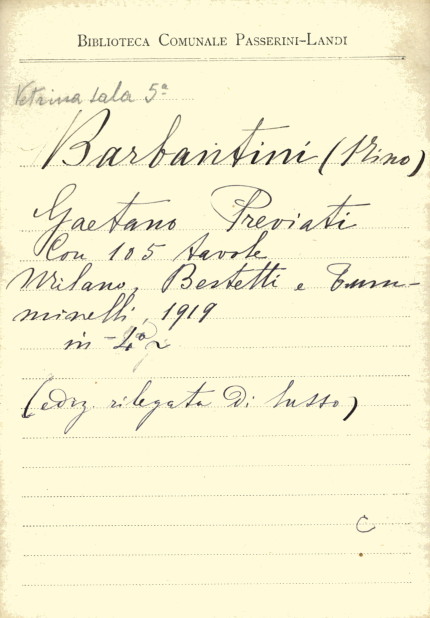 BIBLIOTECA COMUNALE PASSERINI-LANDI
Vetrina sala 5ª
Barbantini (Nino)
Gaetano Previati
Con 105 tavole
Milano, Bestetti e Tum-
minelli, 1919
in-4°
(ediz. rilegata di lusso)
C